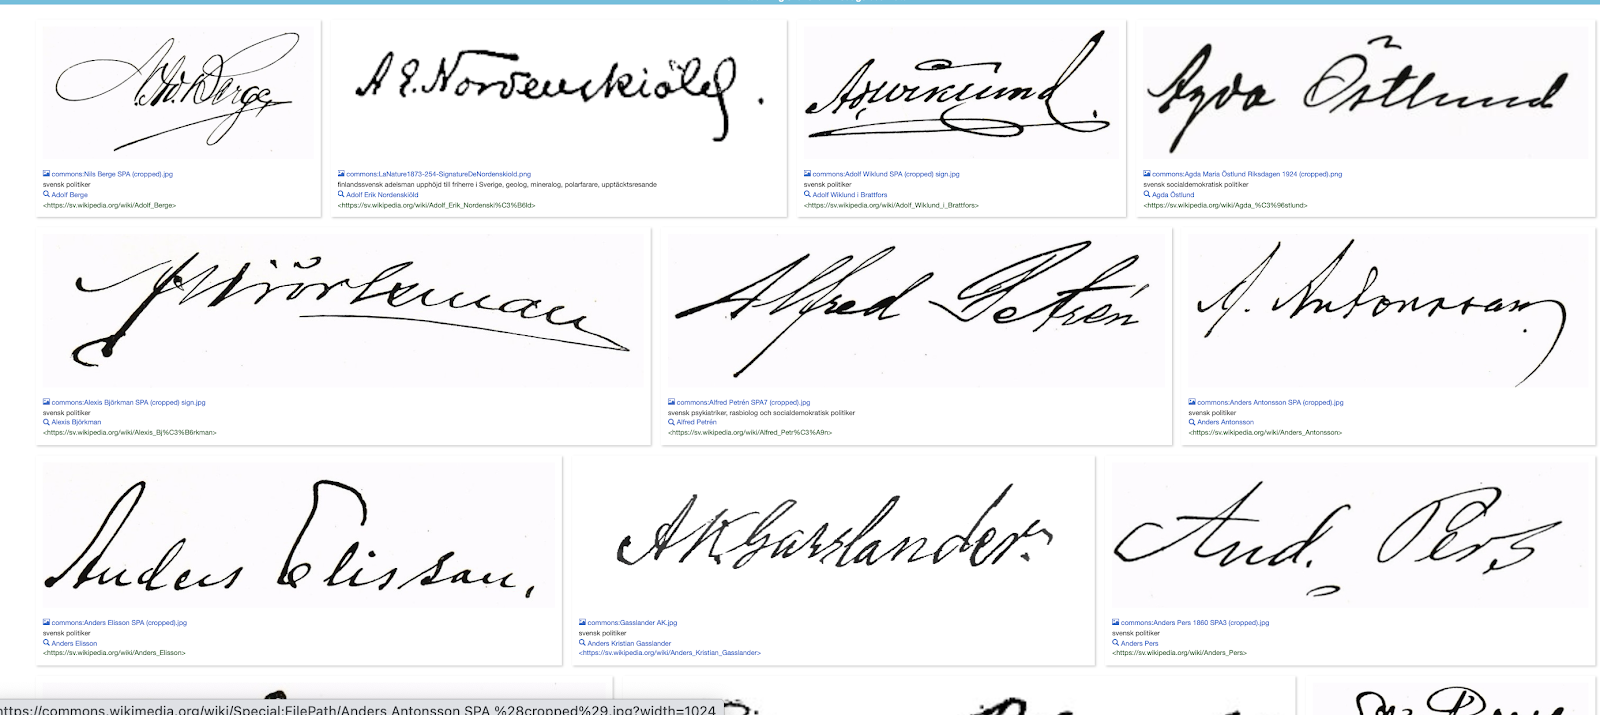 Ad. Berge
A E. Nordenskiöld.
Ad Wiklund.
Agda Östlund
commons:Nils Berge SPA (cropped).jpg
svensk politiker
Adolf Berge
<https://sv.wikipedia.org/wiki/Adolf_Berge>
commons:LaNature1873-254-SignatureDeNordenskiold.png
finlandssvensk adelsman upphöjd till friherre i Sverige, geolog, mineralog, polarfarare, upptäcktsresande
Adolf Erik Nordenskiöld
<https://sv.wikipedia.org/wiki/Adolf_Erik_Nordenski%C3%B6ld>
commons:Adolf Wiklund SPA (cropped) sign.jpg
svensk politiker
Adolf Wiklund i Brattfors
<https://sv.wikipedia.org/wiki/Adolf_Wiklund_i_Brattfors>
commons:Agda Maria Östlund Riksdagen 1924 (cropped).png
svensk socialdemokratisk politiker
Agda Östlund
<https://sv.wikipedia.org/wiki/Agda_%C3%96stlund>
A Björkman
Alfred Petrén
A. Antonsson
commons:Alexis Björkman SPA (cropped) sign.jpg
svensk politiker
Alexis Björkman
<https://sv.wikipedia.org/wiki/Alexis_Bj%C3%B6rkman>
commons:Alfred Petrén SPA7 (cropped).jpg
svensk psykiatriker, rasbiolog och socialdemokratisk politiker
Alfred Petrén
<https://sv.wikipedia.org/wiki/Alfred_Petr%C3%A9n>
commons:Anders Antonsson SPA (cropped).jpg
svensk politiker
Anders Antonsson
<https://sv.wikipedia.org/wiki/Anders_Antonsson>
Anders Elisson,
A K Gasslander.
And. Pers
commons:Anders Elisson SPA (cropped).jpg
svensk politiker
Anders Elisson
<https://sv.wikipedia.org/wiki/Anders_Elisson>
commons:Gasslander AK.jpg
svensk politiker
Anders Kristian Gasslander
<https://sv.wikipedia.org/wiki/Anders_Kristian_Gasslander>
commons:Anders Pers 1860 SPA3 (cropped).jpg
svensk politiker
Anders Pers
<https://sv.wikipedia.org/wiki/Anders_Pers>
https://commons.wikimedia.org/wiki/Special:FilePath/Anders Antonsson SPA %28cropped%29.jpg?width=1024